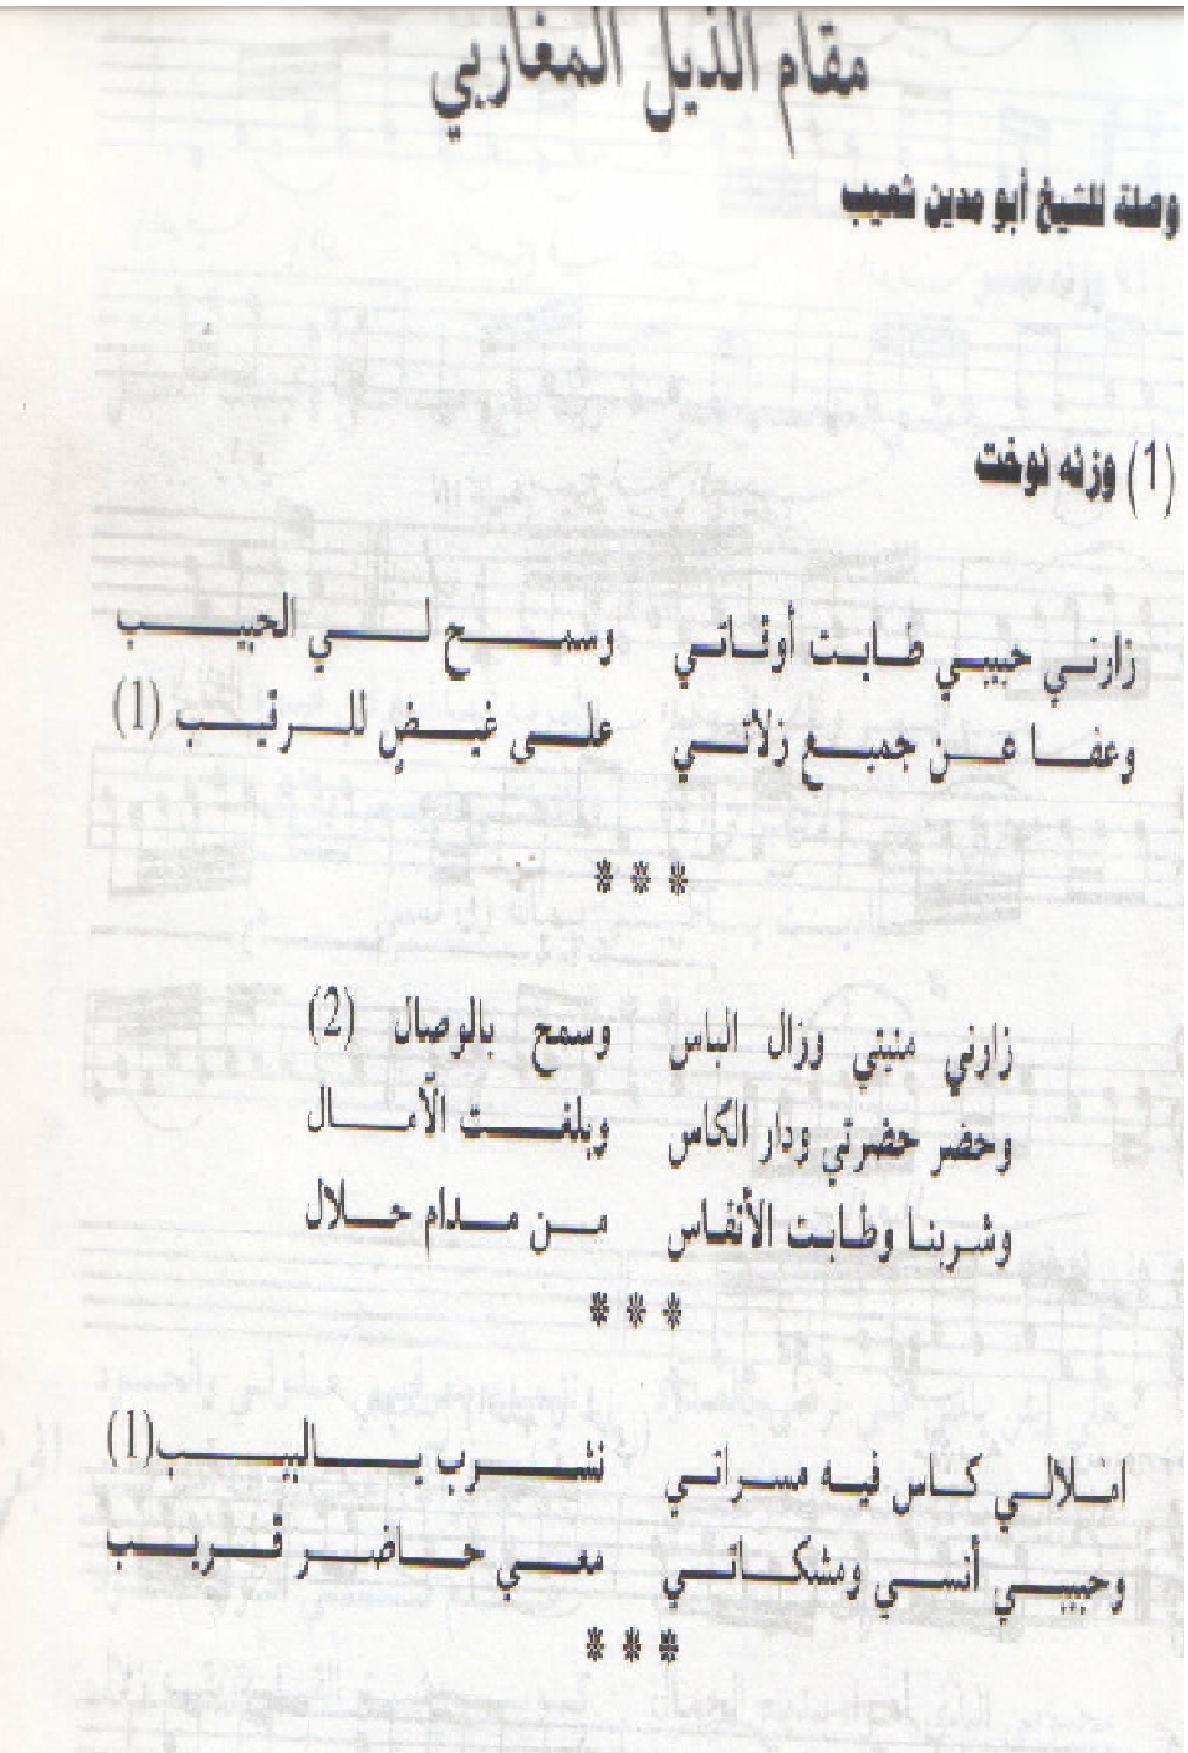 مقام الذيل المغاربي
وصلة للشيخ أبو مدين شعيب
(1) وزنه نوخت
زارني حبيبي طابت أوقاتي وسمح لي الحبيب
وعفا عن جميع زلاتي على غيضٍ للرقيب (1)
***
زارني منيتي وزال الباس وسمح بالوصال (2)
وحضر حضرتي ودار الكاس وبلغت الآمال
وشربنا وطابت الأنفاس من مدام حلال
***
املالي كاس فيه مسراتي نشرب يالبيب(1)
وحبيبي أنسي ومشكاتي معي حاضر قريب
***